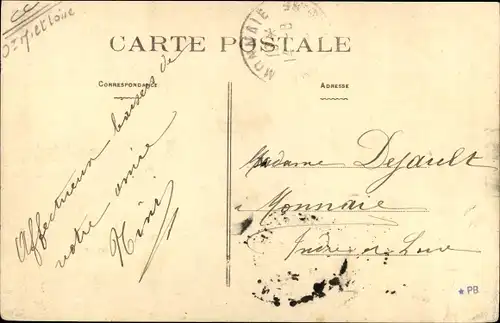 CC
MONNAIE
CARTE POSTALE
CORRESPONDANCE
ADRESSE
Affectueux baisers de
votre amie
Nini
Madame Dejault
à Monnaie
Indre et Loire
* PB